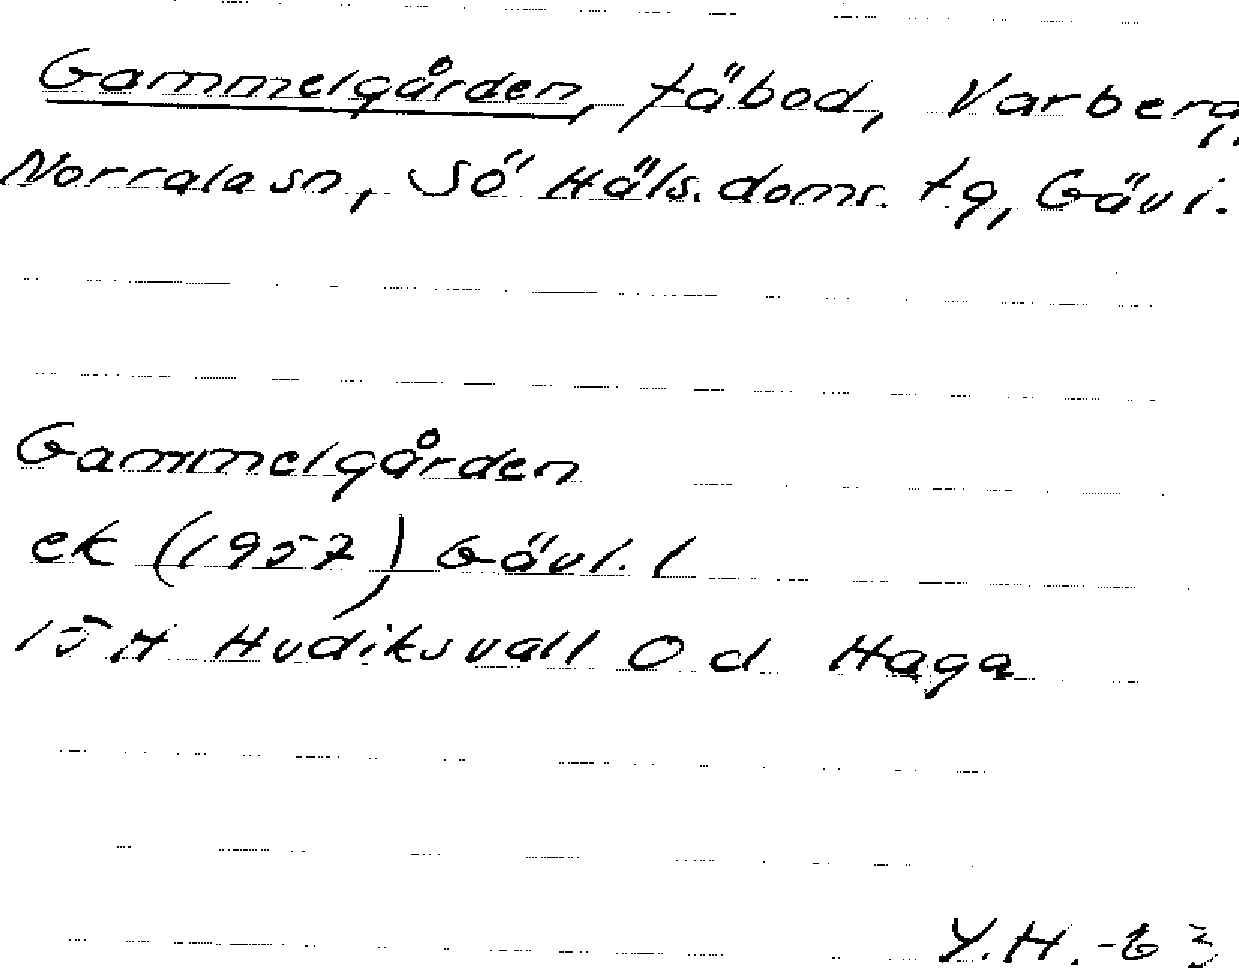 Gammelgården, fäbod, Varberg,
Norrala sn, Sö Häls. doms. tg, Gävl.
Gammelgården
ek (1957) Gävl. l
15H Hudiksvall 0 d Haga
Y.H.-63